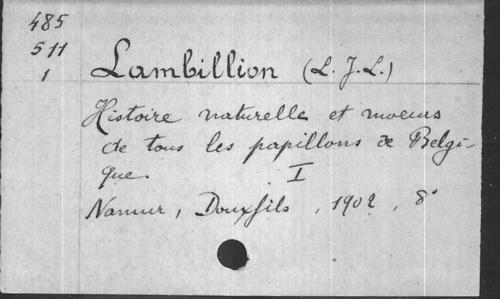 485
511
1
Lambillion (L. J. L.)
Histoire naturelle et moeurs
de tous les papillons de Belgi-
que. I
Namur, Douxfils, 1902, 8°